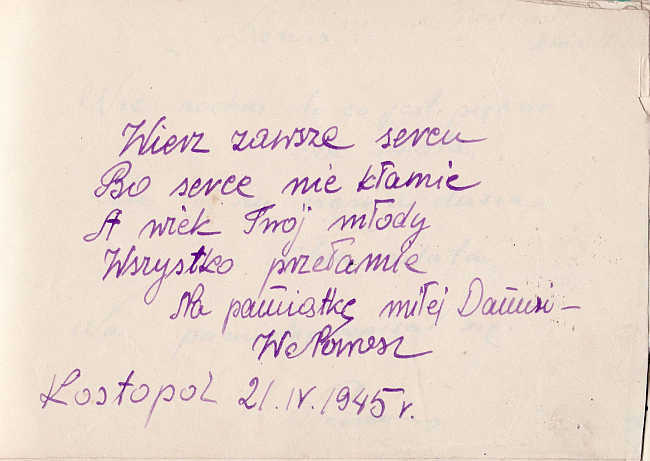 Wierz zawsze sercu
Bo serce nie kłamie
A wiek Twój młody
Wszystko przełamie
Na pamiątkę miłej Danusi –
Kostopol 21.IV.1945 r.